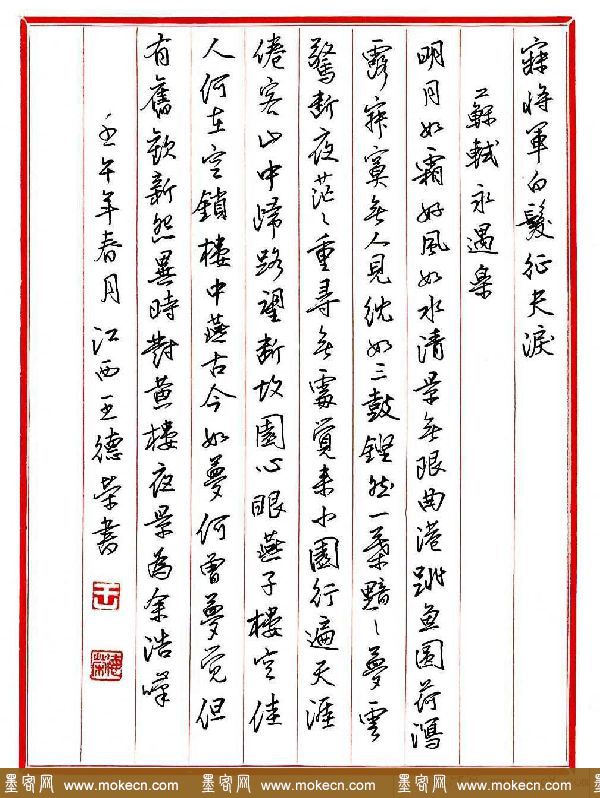 寐将軍白髮征夫淚
蘇軾永遇樂
明月如霜好風如水清景無限曲港跳魚圓荷瀉
露寂寞無人見紞如三鼓鏗然一葉黯〻夢雲
驚断夜茫〻重尋無處覺来小園行遍天涯
倦客山中歸路望断故園心眼燕子樓空佳
人何在空鎖樓中燕古今如夢何曾夢覺但
有舊歡新怨異時對黄樓夜景為余浩嘆
壬午年春月 江西王德榮書
王
德榮
墨客网 www.mokecn.com 墨客网 www.mokecn.com 墨客网 www.mokecn.com